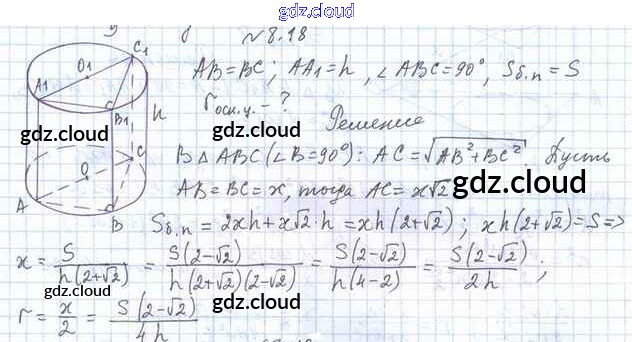 gdz.cloud
N 8.18
C₁
O₁
A₁
B₁
h
C
O
A
B
AB=BC; AA₁=h, ∠ABC=90°, Sб.п=S
rосн.ц. - ?
Решение
В △ ABC (∠B=90°): AC=√(AB²+BC²). Пусть
AB=BC=x, тогда AC=x√2
Sб.п = 2xh+x√2·h = xh(2+√2); xh(2+√2)=S =>
x = S/(h(2+√2)) = S(2-√2)/(h(2+√2)(2-√2)) = S(2-√2)/(h(4-2)) = S(2-√2)/(2h);
r = x/2 = S(2-√2)/(4h)
gdz.cloud
gdz.cloud
gdz.cloud
gdz.cloud
gdz.cloud
gdz.cloud
gdz.cloud